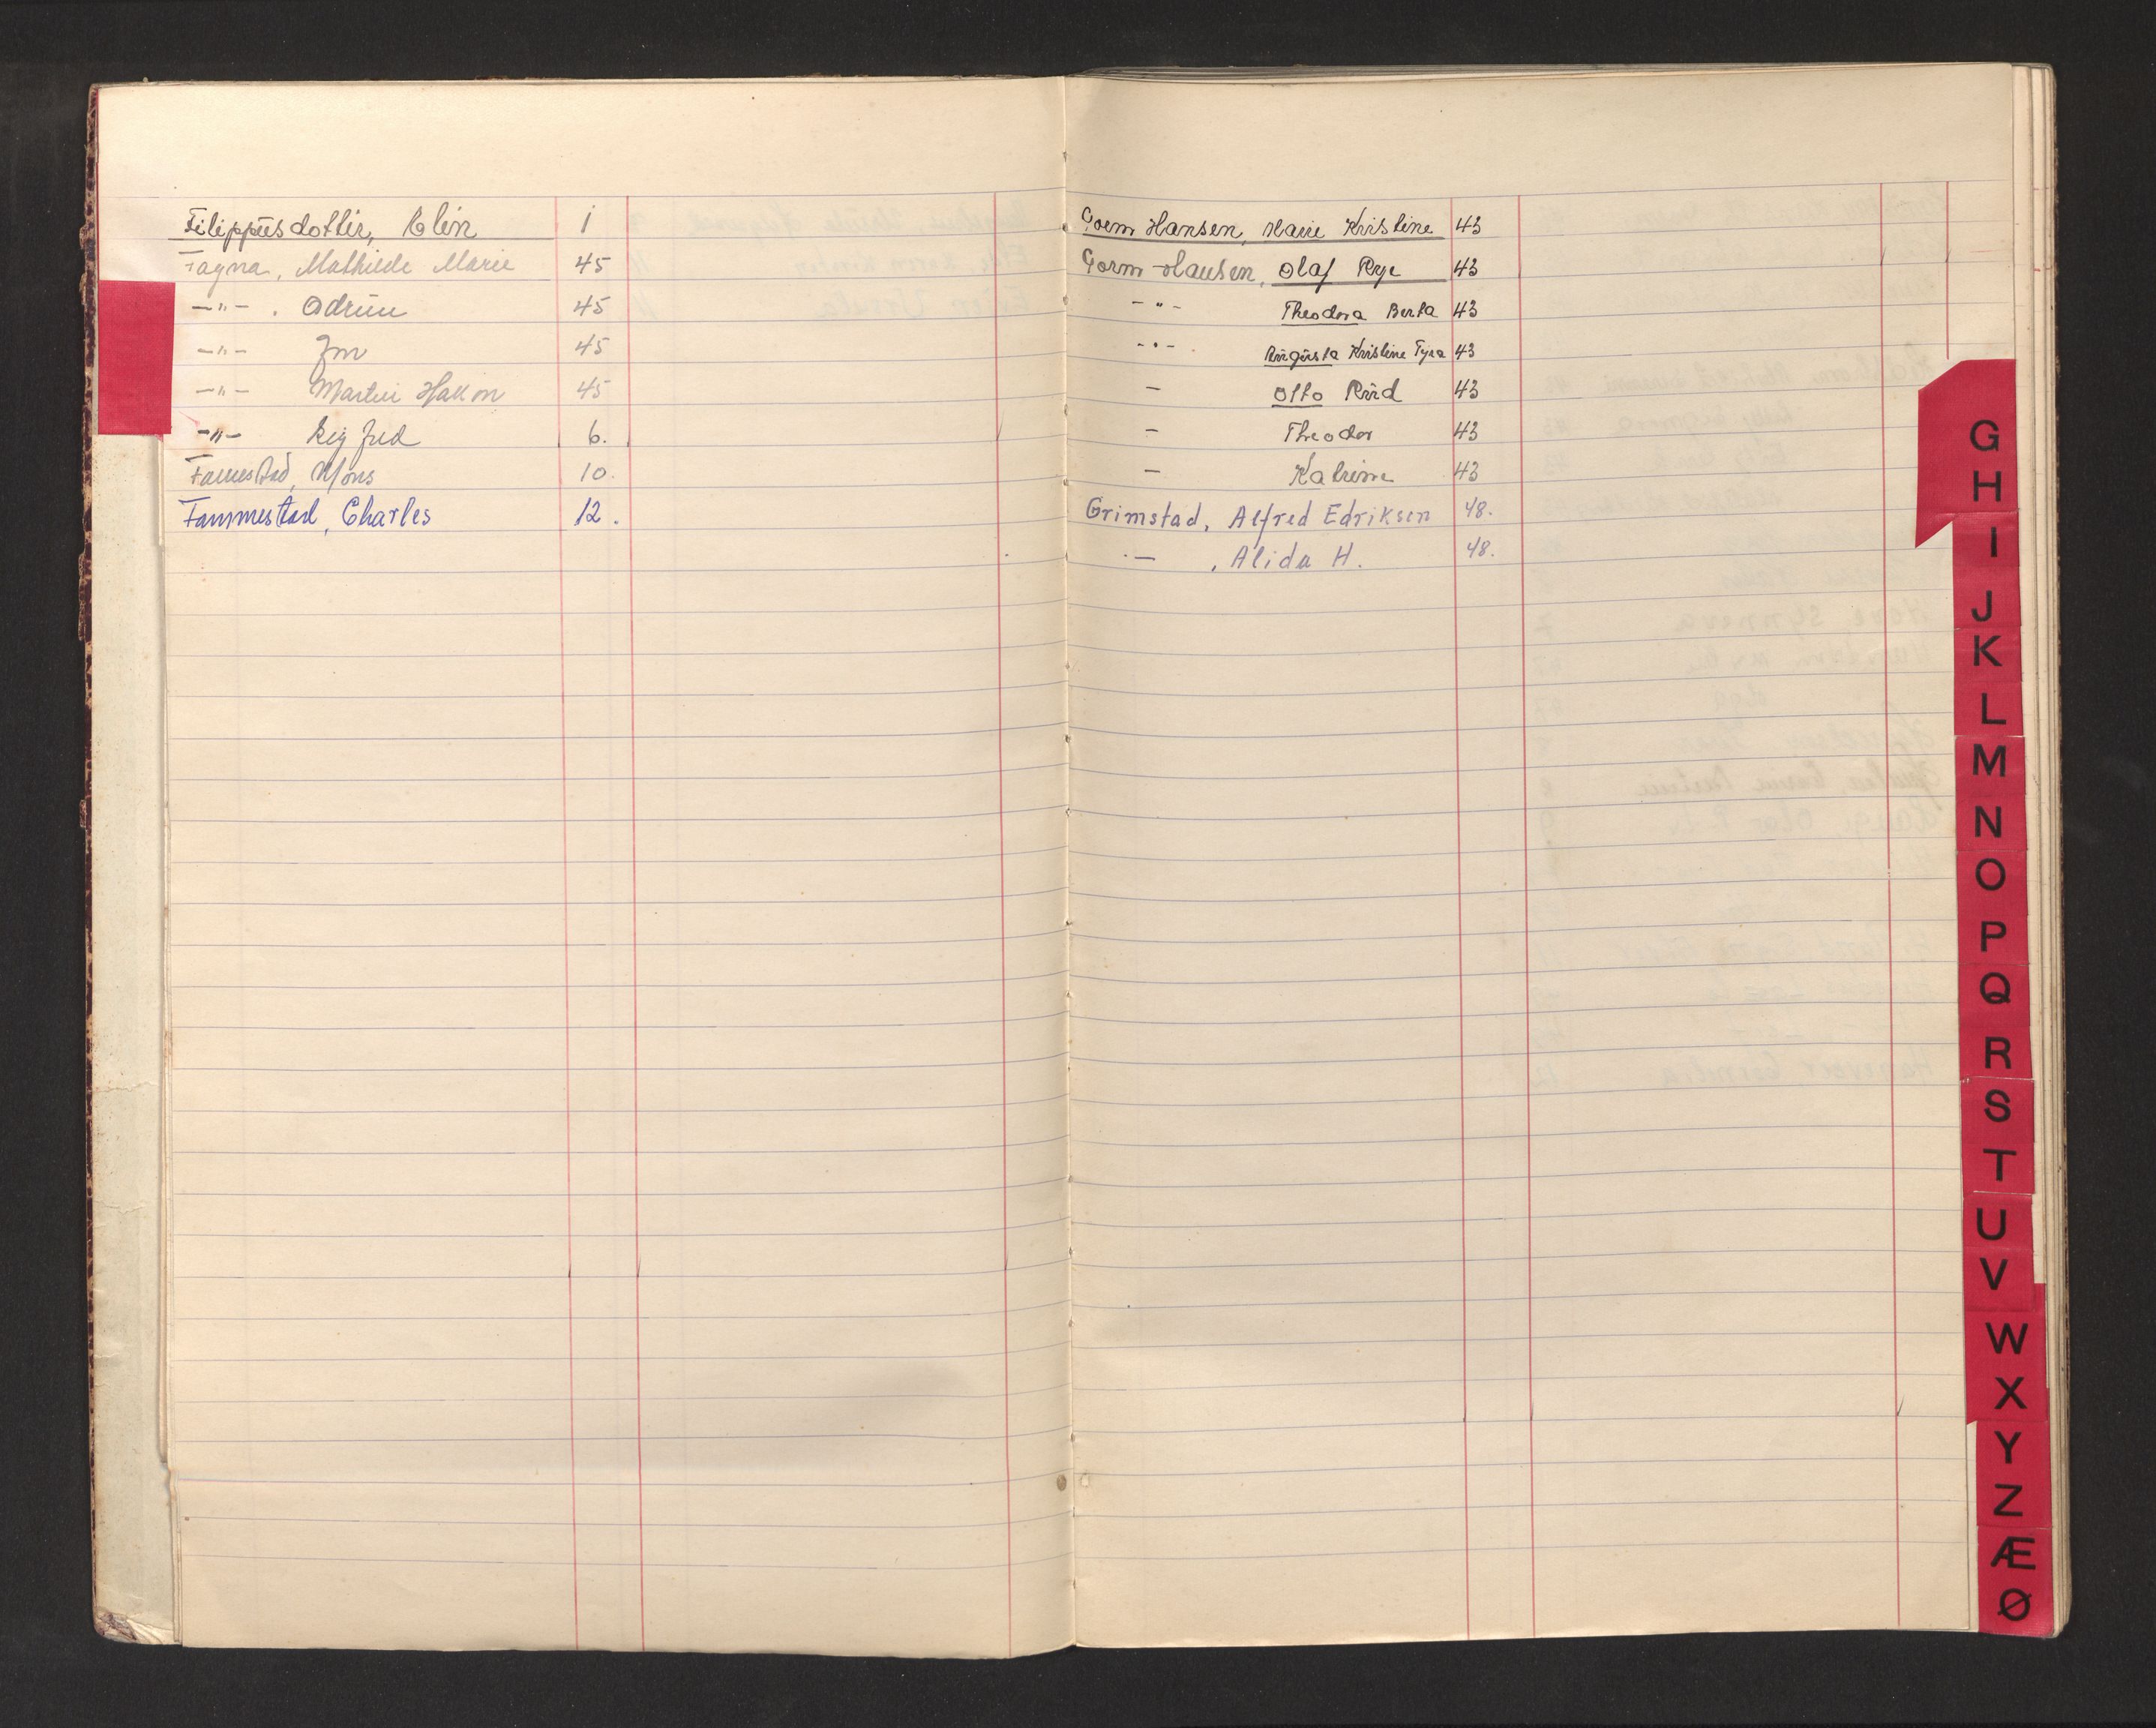 Filippusdottir, Elin 1
Fagna, Mathilde Marie 45
-"- . Odrun 45
-"- Jon 45
-"- Martin Hakon 45
-"- Sigfred 6.
Famestad, Mons 10.
Fammestad, Charles 12.
Gorm Hansen, Marie Kristine 43
Gorm-Hansen, Olaf Rye 43
-"- Theodora Berta 43
-"- Augusta Kristine Tyra 43
- Otto Ruud 43
- Theodor 43
- Katrine 43
Grimstad, Alfred Edriksen 48.
- , Alida H. 48.
G
H
I
J
K
L
M
N
O
P
Q
R
S
T
U
V
W
X
Y
Z
Æ
Ø